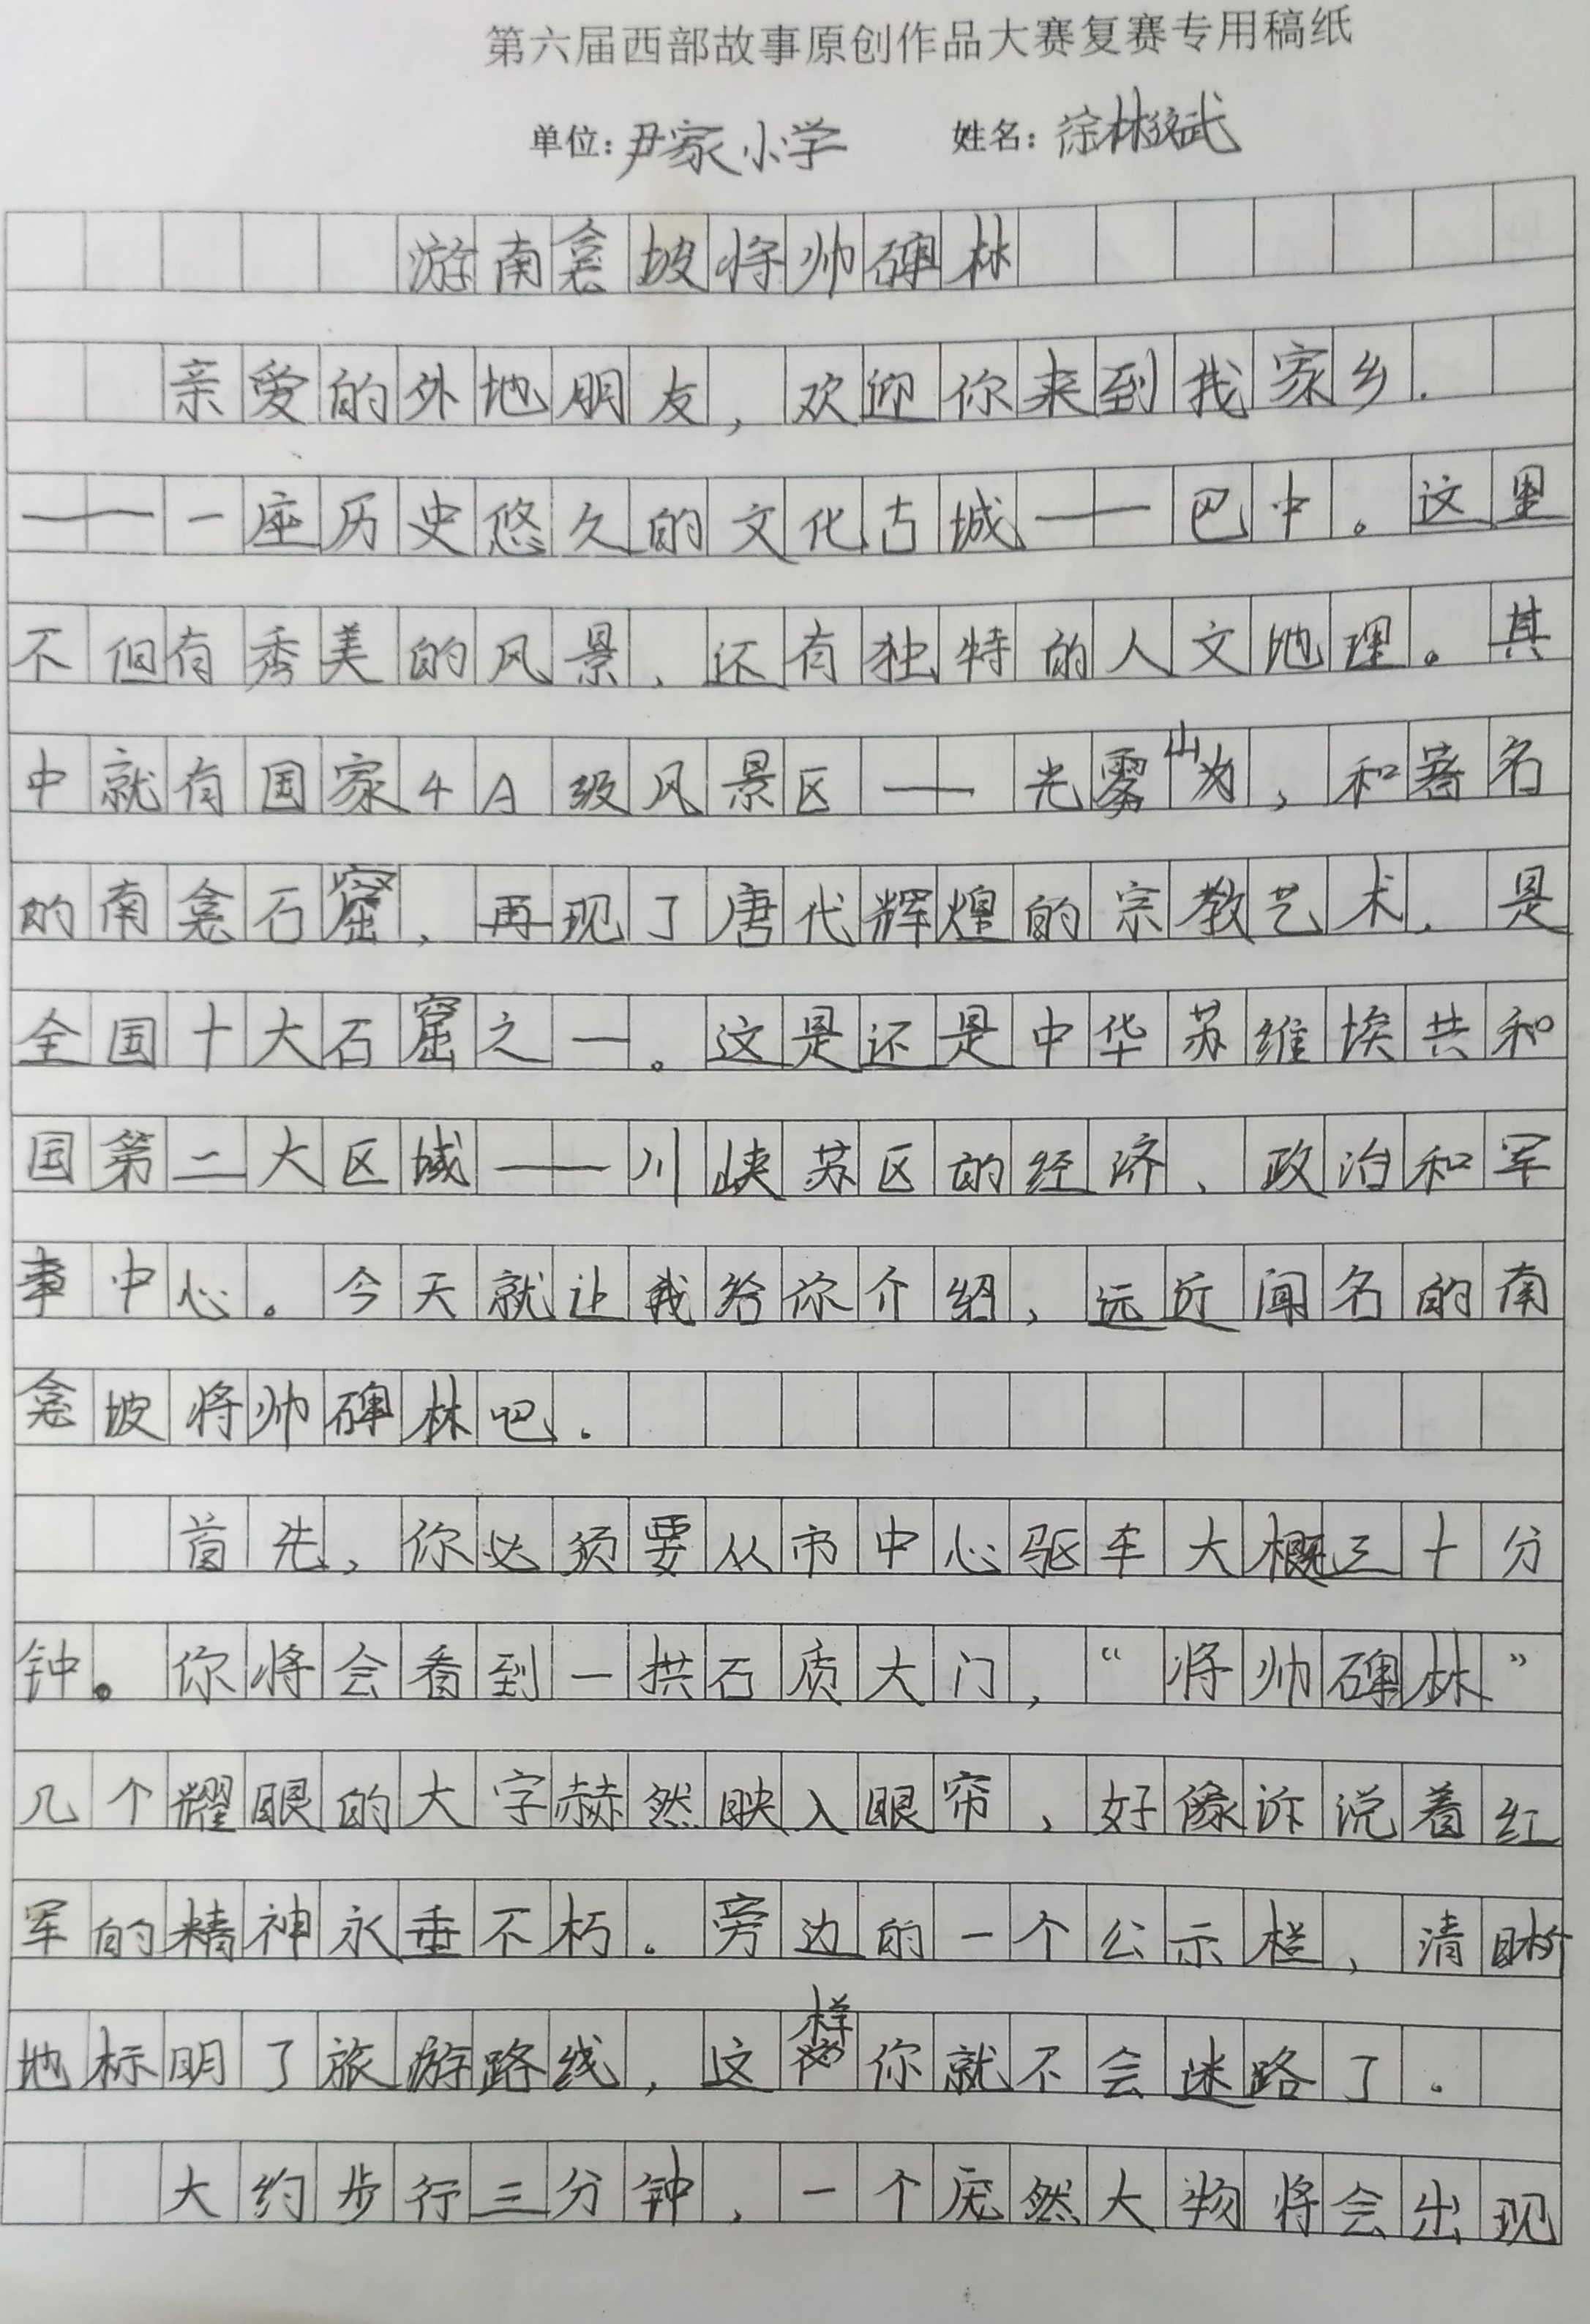 第六届西部故事原创作品大赛复赛专用稿纸
单位：尹家小学 姓名：徐林斌
游南龛坡将帅碑林
亲爱的外地朋友，欢迎你来到我家乡.
——一座历史悠久的文化古城——巴中。这里
不但有秀美的风景、还有独特的人文地理。其
中就有国家4A级风景区——光雾山，和著名
的南龛石窟，再现了唐代辉煌的宗教艺术.是
全国十大石窟之一。这是还是中华苏维埃共和
国第二大区域——川峡苏区的经济、政治和军
事中心。今天就让我给你介绍，远近闻名的南
龛坡将帅碑林吧.
首先，你必须要从市中心驱车大概三十分
钟。你将会看到一拱石质大门，“将帅碑林”
几个耀眼的大字赫然映入眼帘，好像诉说着红
军的精神永垂不朽。旁边的一个公示栏，清晰
地标明了旅游路线，这样你就不会迷路了.
大约步行三分钟，一个庞然大物将会出现